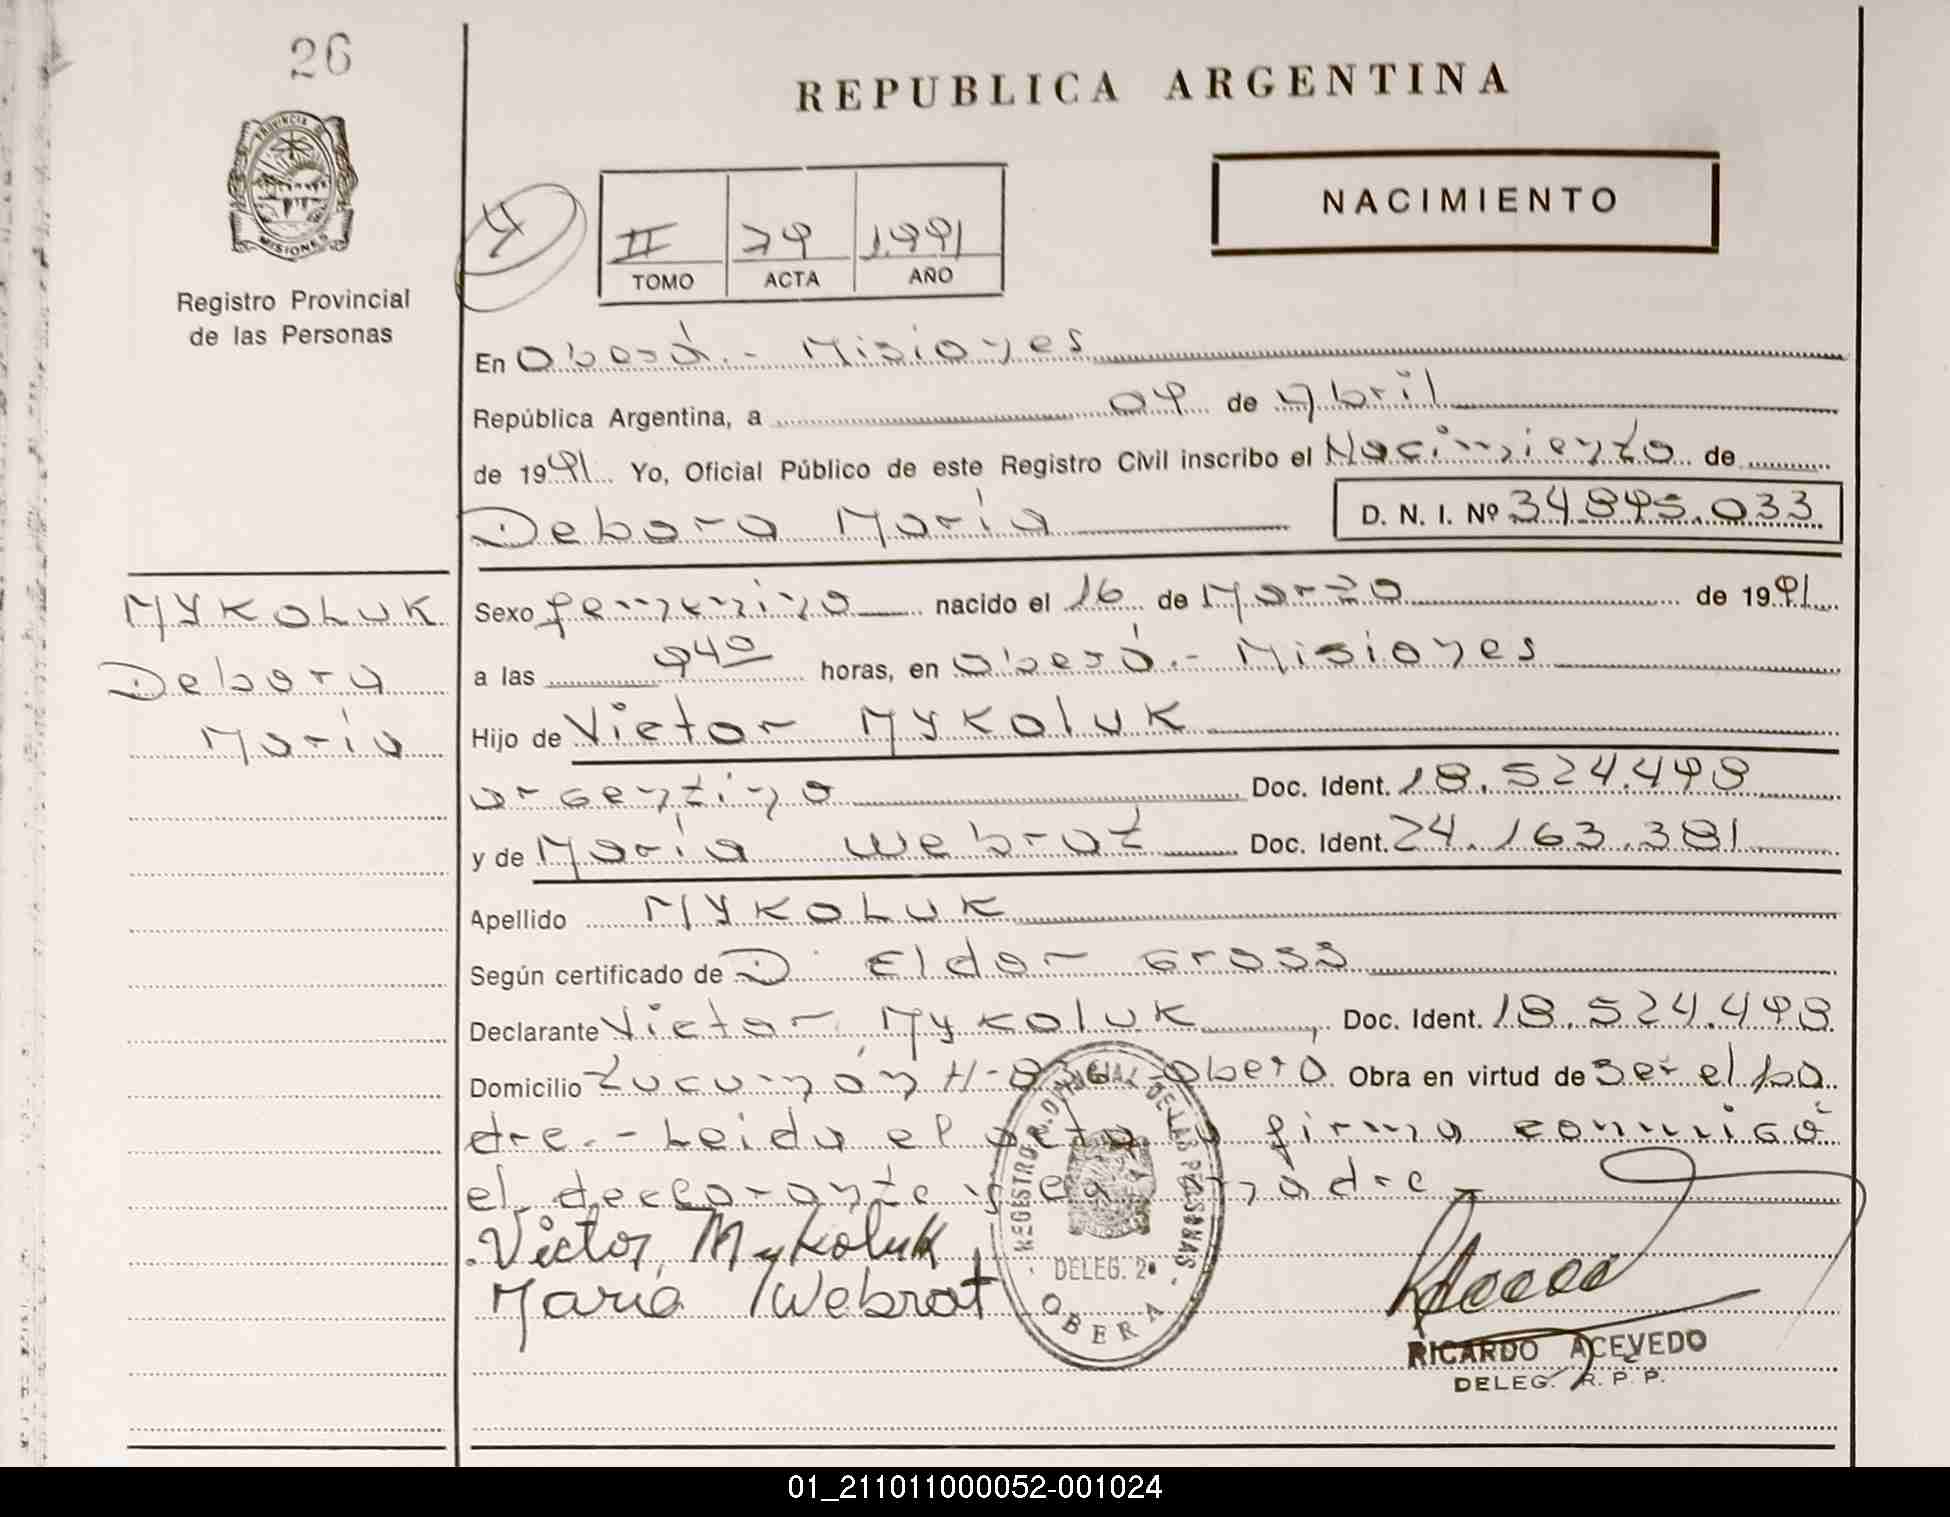 26
REPUBLICA ARGENTINA
PROVINCIA DE
MISIONES
Registro Provincial
de las Personas
NACIMIENTO
II 79 1.991
TOMO ACTA AÑO
En Oberá.- Misiones
República Argentina, a 09 de Abril
de 1991 Yo, Oficial Público de este Registro Civil inscribo el Nacimiento de
Debora María D. N. I. Nº 34.895.033
MYKOLUK
Debora
María
Sexo femenino nacido el 16 de Marzo de 1991
a las 940 horas, en Oberá.- Misiones
Hijo de Victor MYKoluK
argentino Doc. Ident. 18.524.498
y de María Webrat Doc. Ident. 24.163.381
Apellido MYKOLUK
Según certificado de D. Eldor Gross
Declarante Victor MYKoluK, Doc. Ident. 18.524.498
Domicilio Tucumán Oberá Obra en virtud de ser el pa
dre.- Leida el acta, firma conmigo
el declarante y la madre
Victor Mykoluk
María Webrat
REGISTRO PROVINCIAL DE LAS PERSONAS
DELEG. 2a
OBERA
RICARDO ACEVEDO
DELEG. R. P. P.
01_211011000052-001024